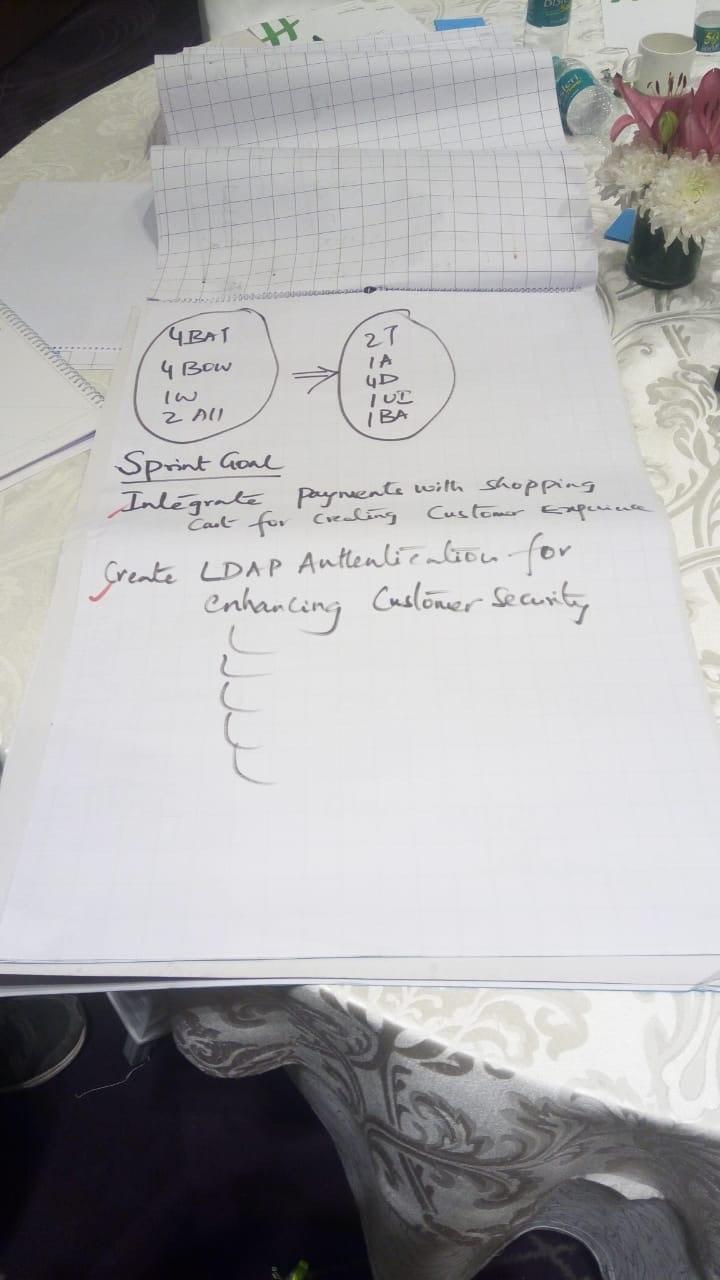 4 BAT
4 BOW
1 W
2 All
2 T
1 A
4 D
1 UI
1 BA
Sprint Goal
Integrate payments with shopping
Cart for creating Customer Experience
Create LDAP Authentication for
enhancing Customer Security